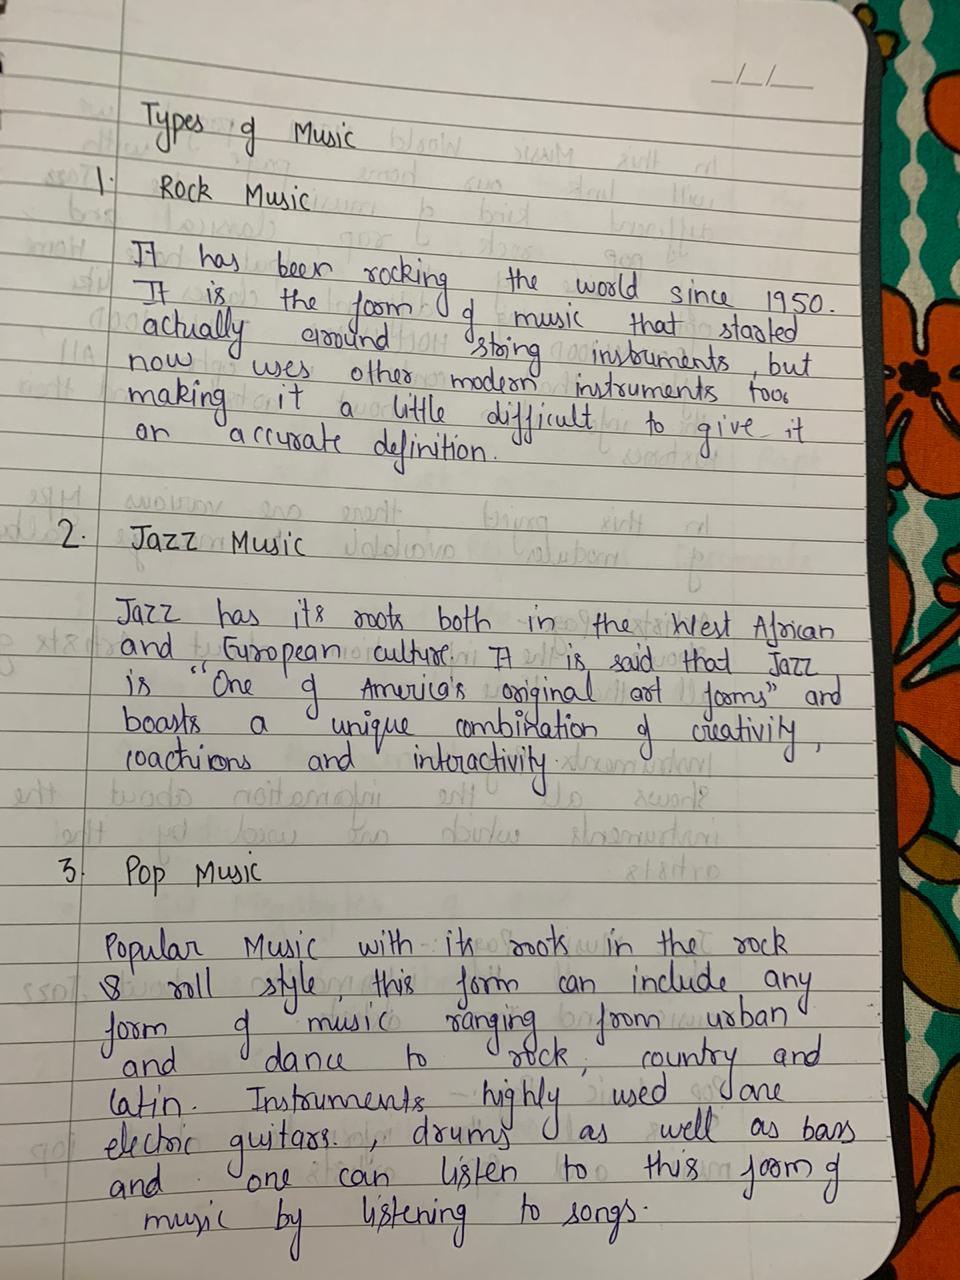 _/_/__
Types of Music
1. Rock Music
It has been rocking the world since 1950.
It is the form of music that started
actually around string instruments, but
now uses other modern instruments too
making it a little difficult to give it
an accurate definition.
2. Jazz Music
Jazz has its roots both in the West African
and European culture. It is said that Jazz
is "One of America's original art forms" and
boasts a unique combination of creativity,
and interactivity.
3. Pop Music
Popular Music with its roots in the rock
& roll style, this form can include any
form of music ranging from urban
and dance to rock, country and
latin. Instruments highly used are
electric guitars, drums as well as bass
and one can listen to this form of
music by listening to songs.